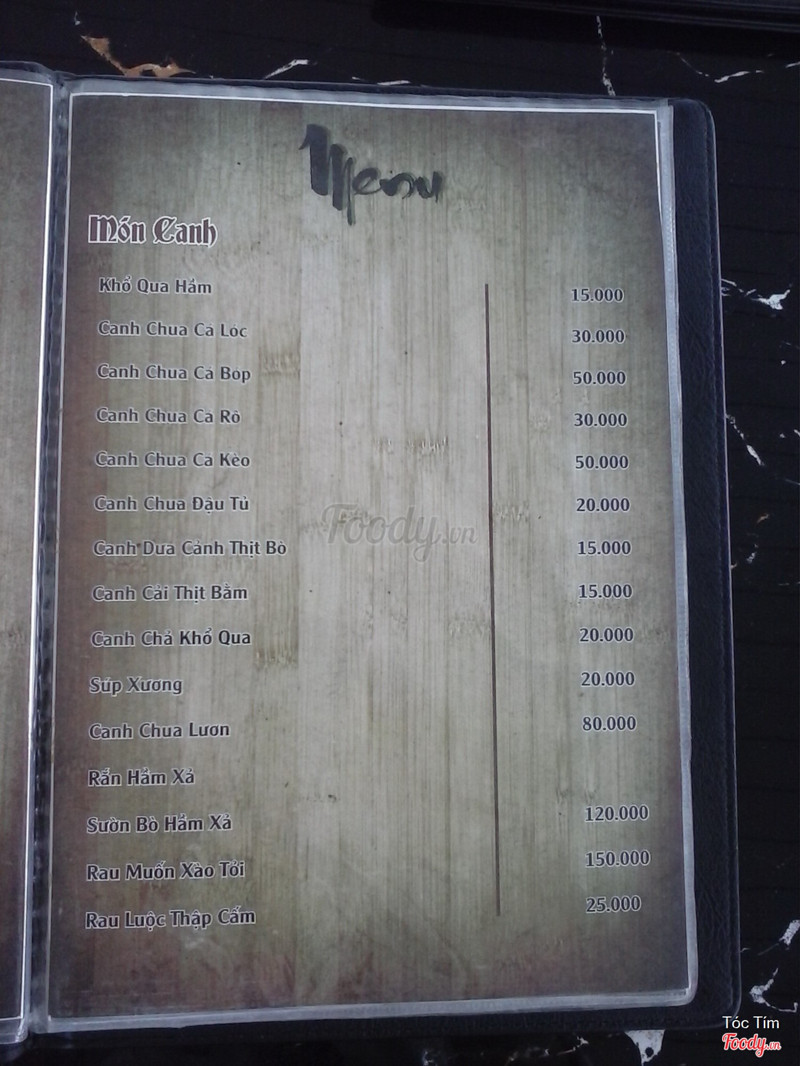 Menu
Món Canh
Khổ Qua Hầm 15.000
Canh Chua Cá Lóc 30.000
Canh Chua Cá Bop 50.000
Canh Chua Ca Rô 30.000
Canh Chua Ca Kèo 50.000
Canh Chua Đậu Tủ 20.000
Canh Dưa Cảnh Thịt Bò 15.000
Canh Cải Thịt Bằm 15.000
Canh Chả Khổ Qua 20.000
Súp Xương 20.000
Canh Chua Lươn 80.000
Rắn Hầm Xả
Sườn Bò Hầm Xả 120.000
Rau Muốn Xào Tỏi 150.000
Rau Luộc Thập Cẩm 25.000
Foody.vn
Tóc Tím
Foody.vn